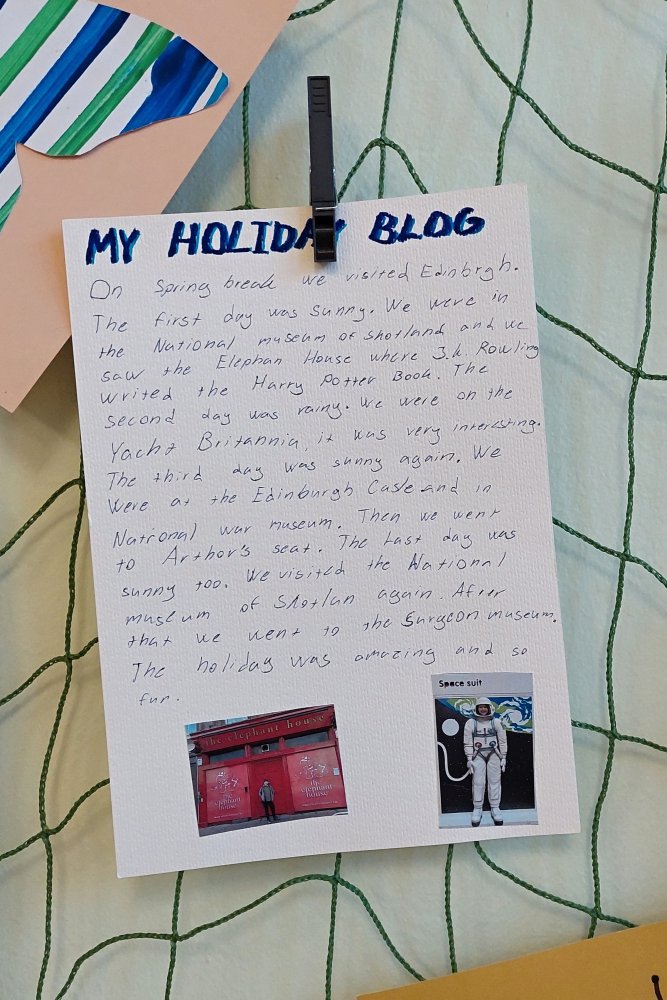 MY HOLIDAY BLOG
On Spring break we visited Edinbrgh.
The first day was sunny. We were in
the National museum of shotland and we
saw the Elephan House where J.k. Rowling
writed the Harry Potter Book. The
second day was rainy. We were on the
Yacht Britannia, it was very interesting.
The third day was sunny again. We
were at the Edinburgh Casle and in
National war museum. Then we went
to Arthor's seat. The Last day was
sunny too. We visited the National
museum of Shotlan again. After
that we went to the Surgeon museum.
The holiday was amazing and so
fun.
the elephant house
the
elephant
house
the
elephant
house
Space suit